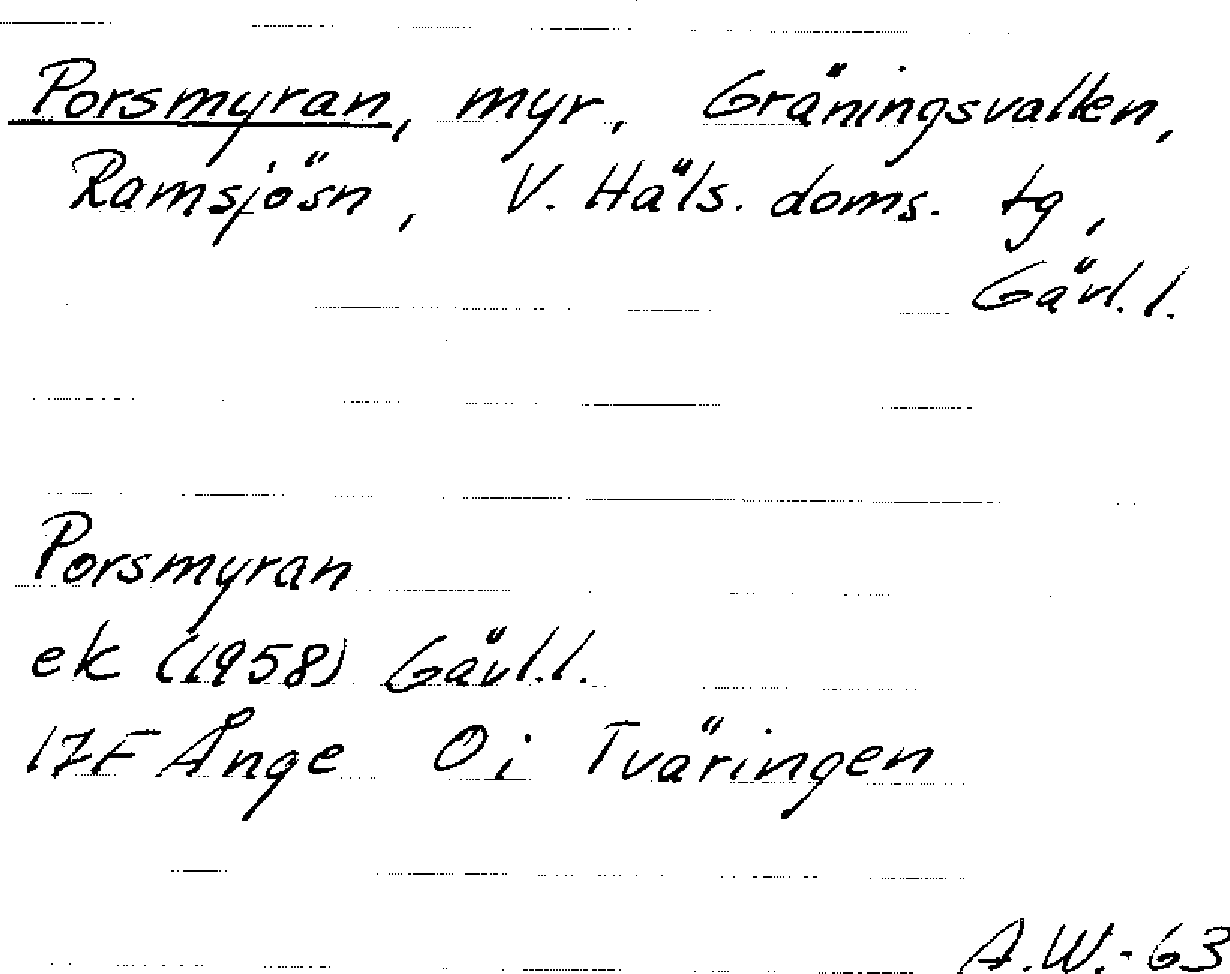 Porsmyran, myr, Gräningsvallen,
Ramsjösn, V. Häls. doms. tg,
Gävl. l.
Porsmyran
ek (1958) Gävl. l.
17F Ånge 0 i Tväringen
A.W.-63